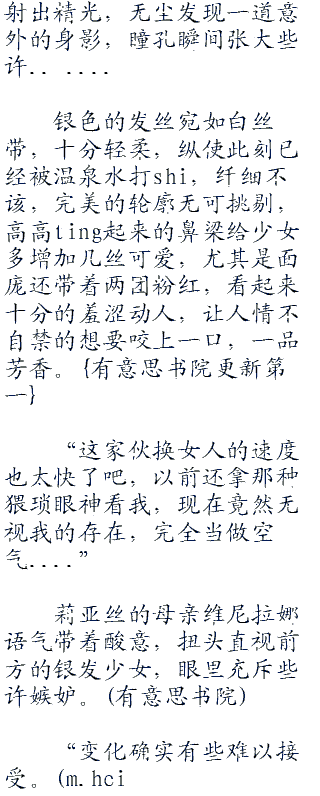 射出精光，无尘发现一道意
外的身影，瞳孔瞬间张大些
许.. ....
银色的发丝宛如白丝
带，十分轻柔，纵使此刻已
经被温泉水打shi，纤细不
该，完美的轮廓无可挑剔，
高高ting起来的鼻梁给少女
多增加几丝可爱，尤其是面
庞还带着两团粉红，看起来
十分的羞涩动人，让人情不
自禁的想要咬上一口，一品
芳香。{有意思书院更新第
一}
“这家伙换女人的速度
也太快了吧，以前还拿那种
猥琐眼神看我，现在竟然无
视我的存在，完全当做空
气....”
莉亚丝的母亲维尼拉娜
语气带着酸意，扭头直视前
方的银发少女，眼里充斥些
许嫉妒。(有意思书院)
“变化确实有些难以接
受。(m.hci